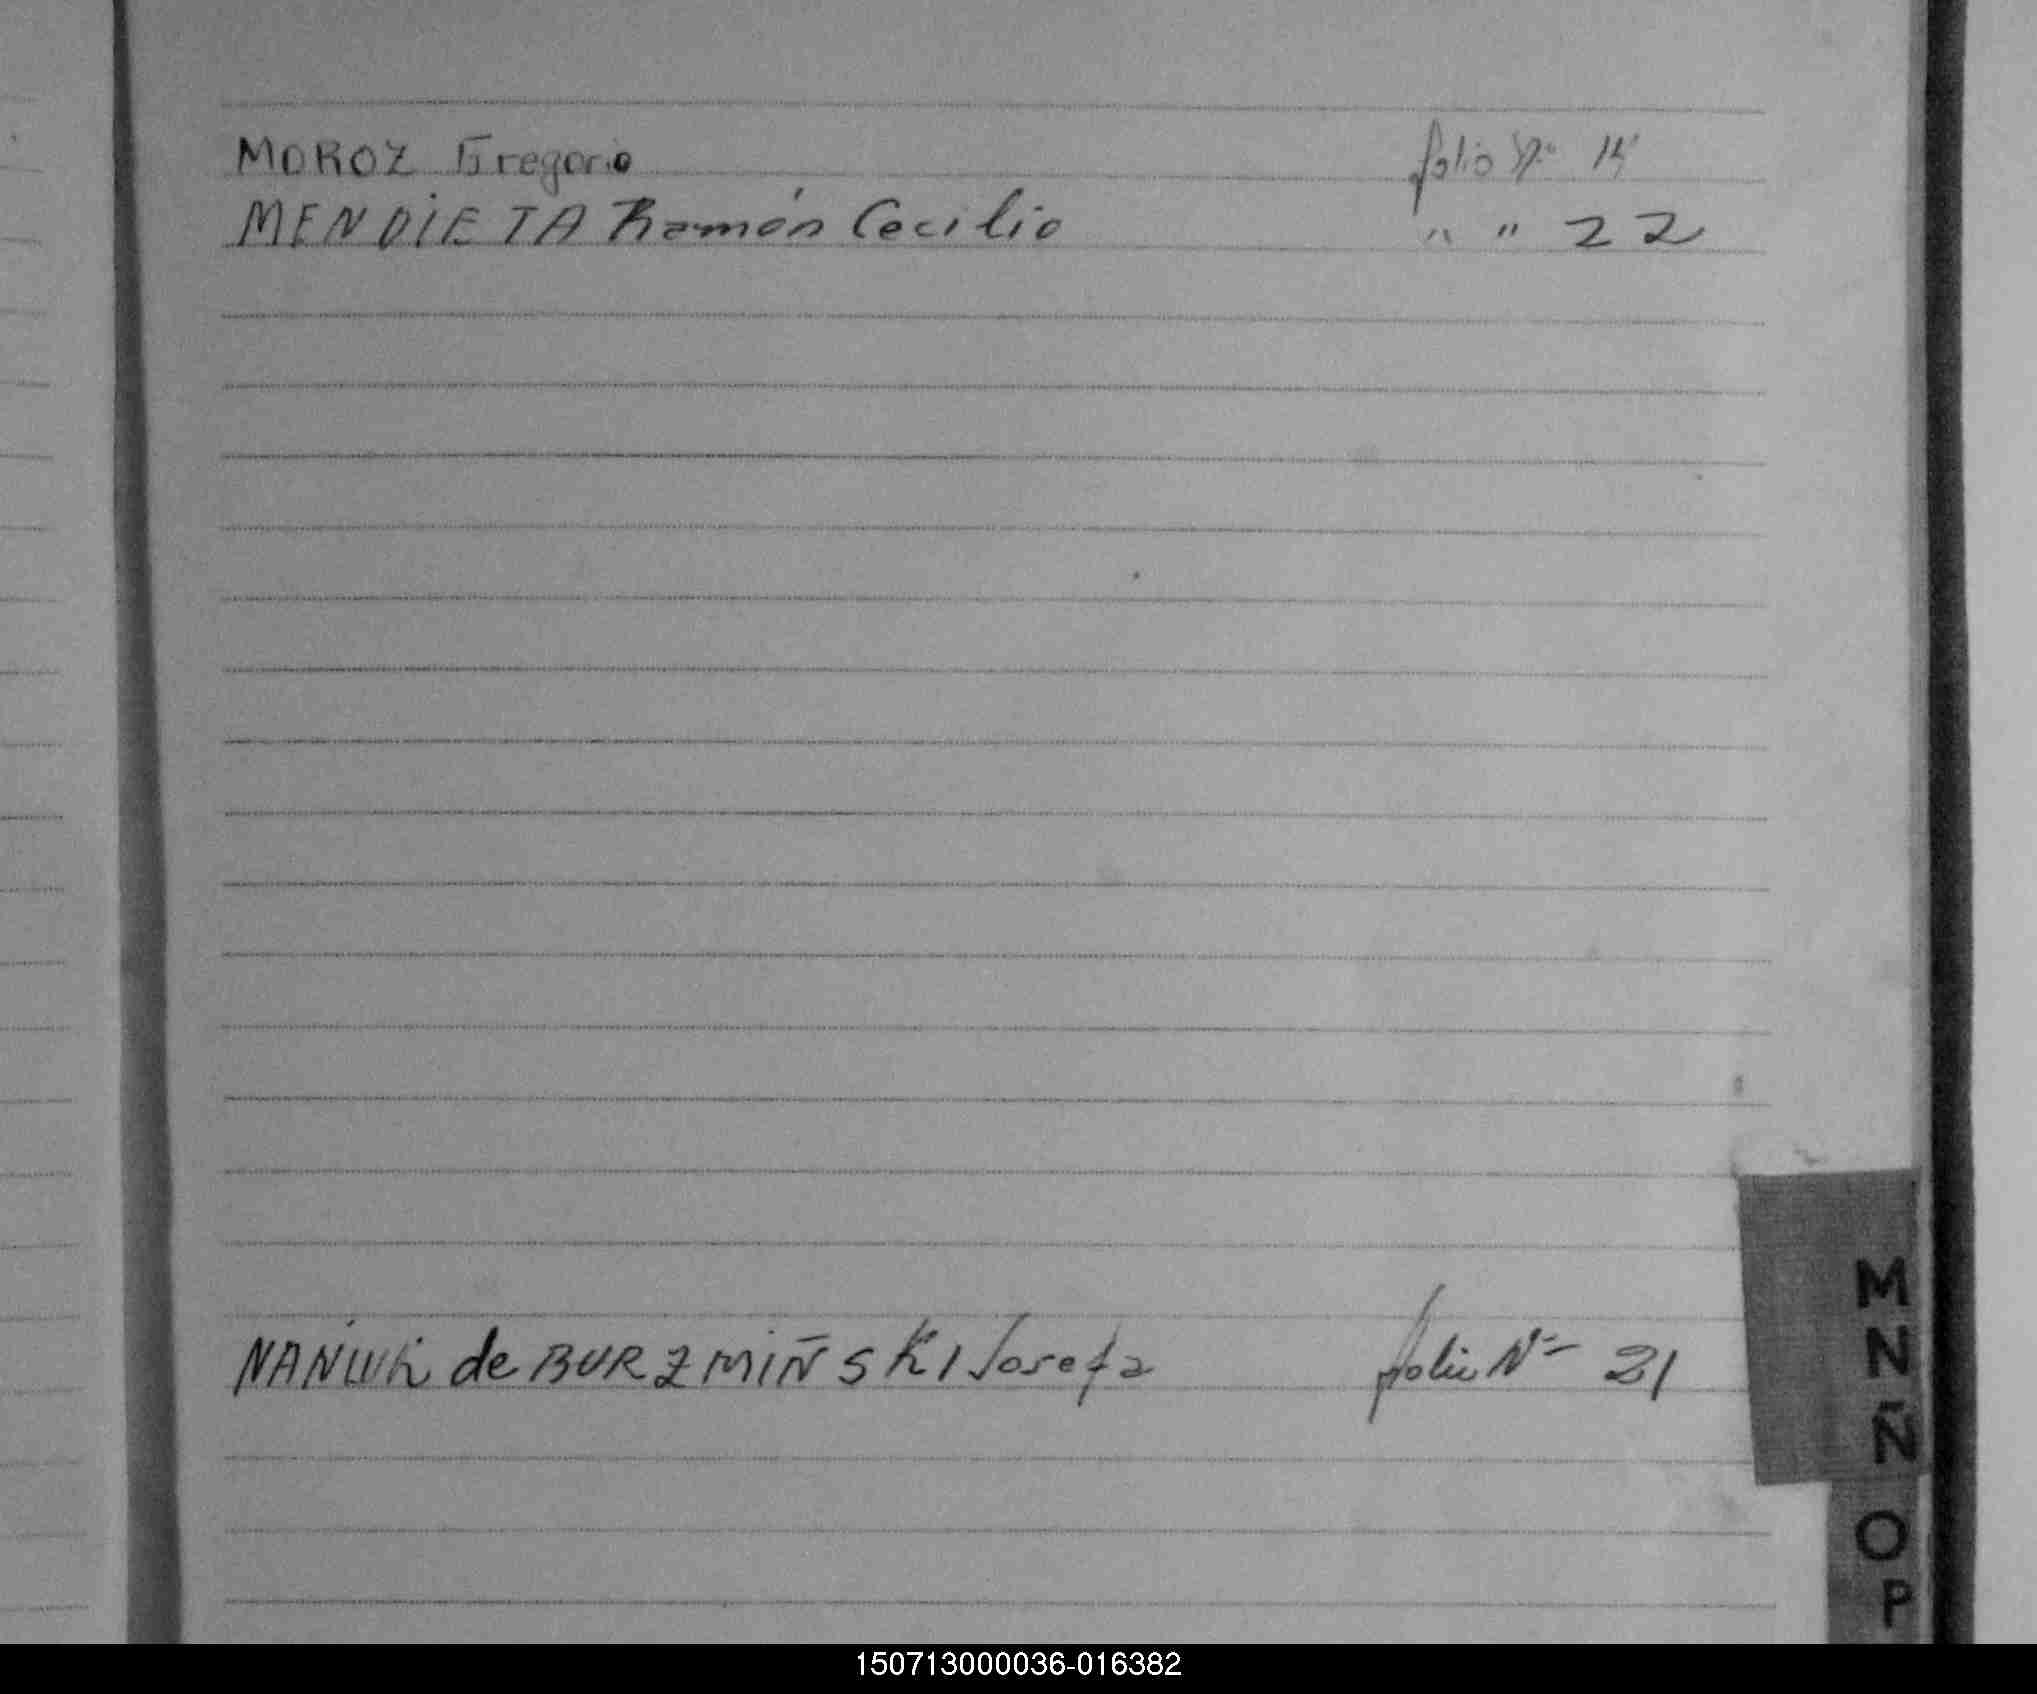 MOROZ Gregorio folio Nº 14
MENDIETA Ramón Cecilio " " 22
NANUK de BURZMIÑSKI Josefa folio Nº 21
M
N
Ñ
O
P
150713000036-016382